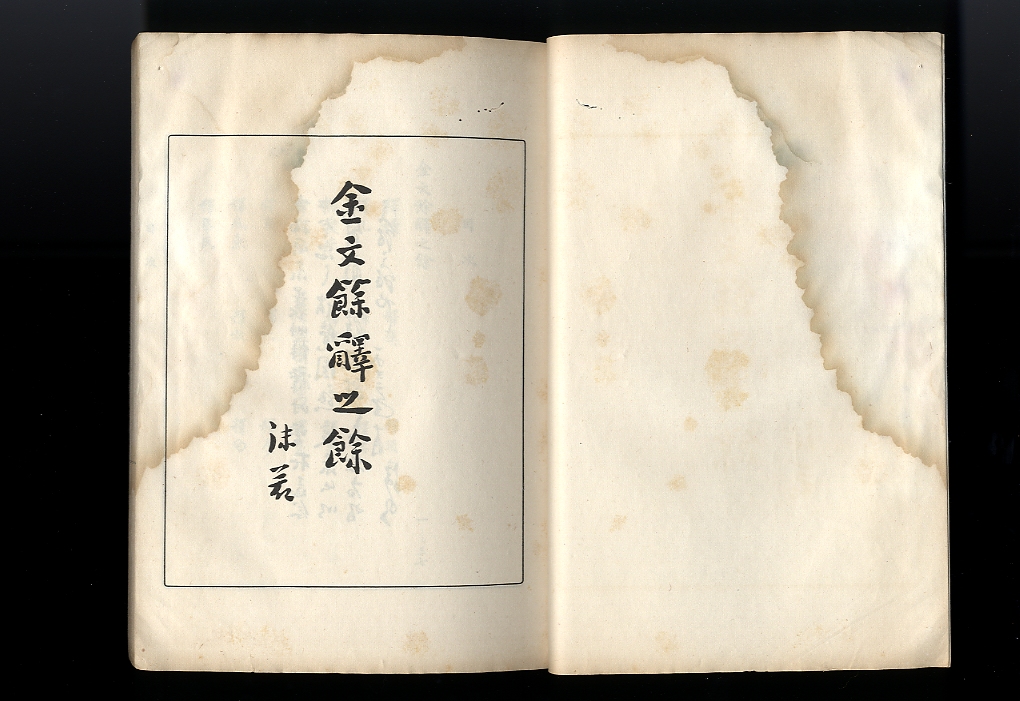 金文餘釋之餘
沫若